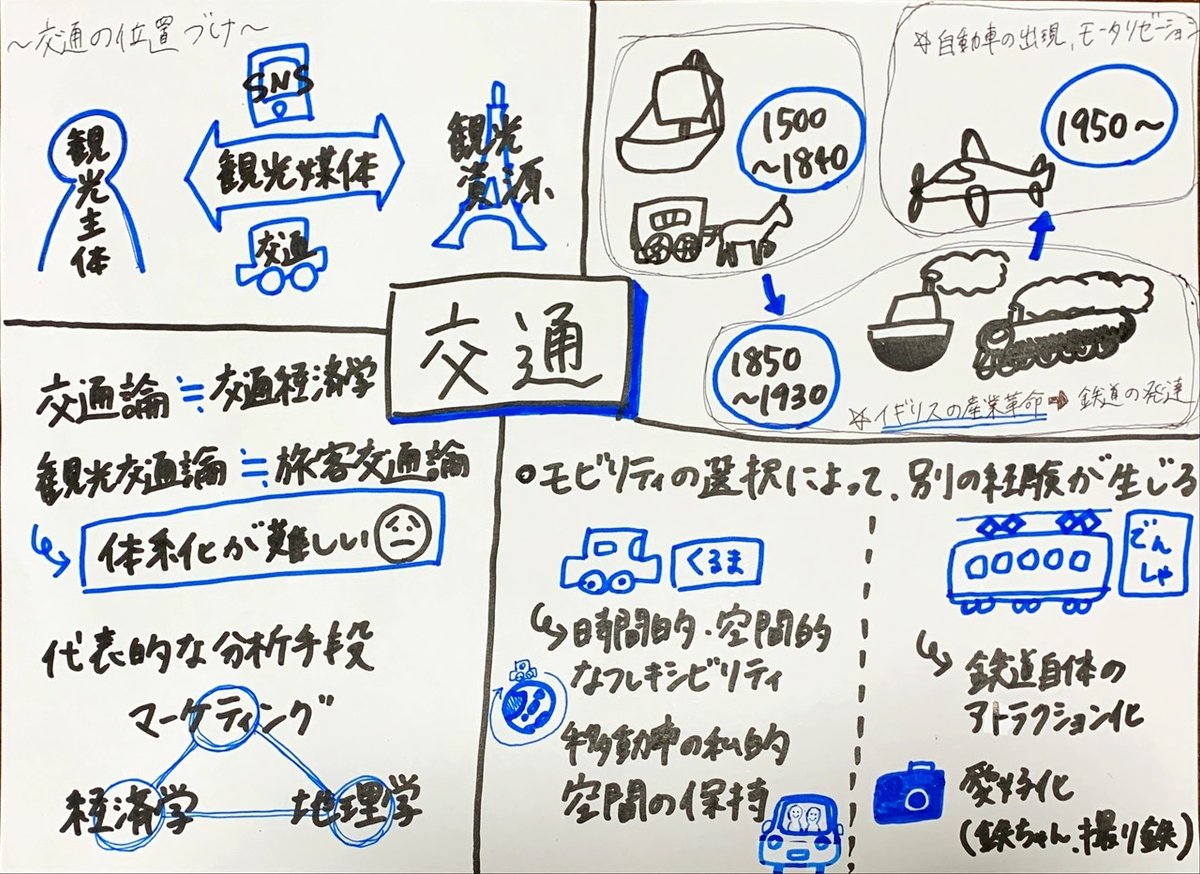 〜交通の位置づけ〜
SNS
観光主体
観光媒体
観光資源
交通
1500
〜1840
☆自動車の出現、モータリゼーション
1950〜
1850
〜1930
☆イギリスの産業革命⇨鉄道の発達
交通
交通論≒交通経済学
観光交通論≒旅客交通論
体系化が難しい
代表的な分析手段
マーケティング
経済学
地理学
○モビリティの選択によって、別の経験が生じる
くるま
時間的・空間的
なフレキシビリティ
移動車の私的
空間の保持
でんしゃ
鉄道自体の
アトラクション化
愛好化
(鉄ちゃん、撮り鉄)